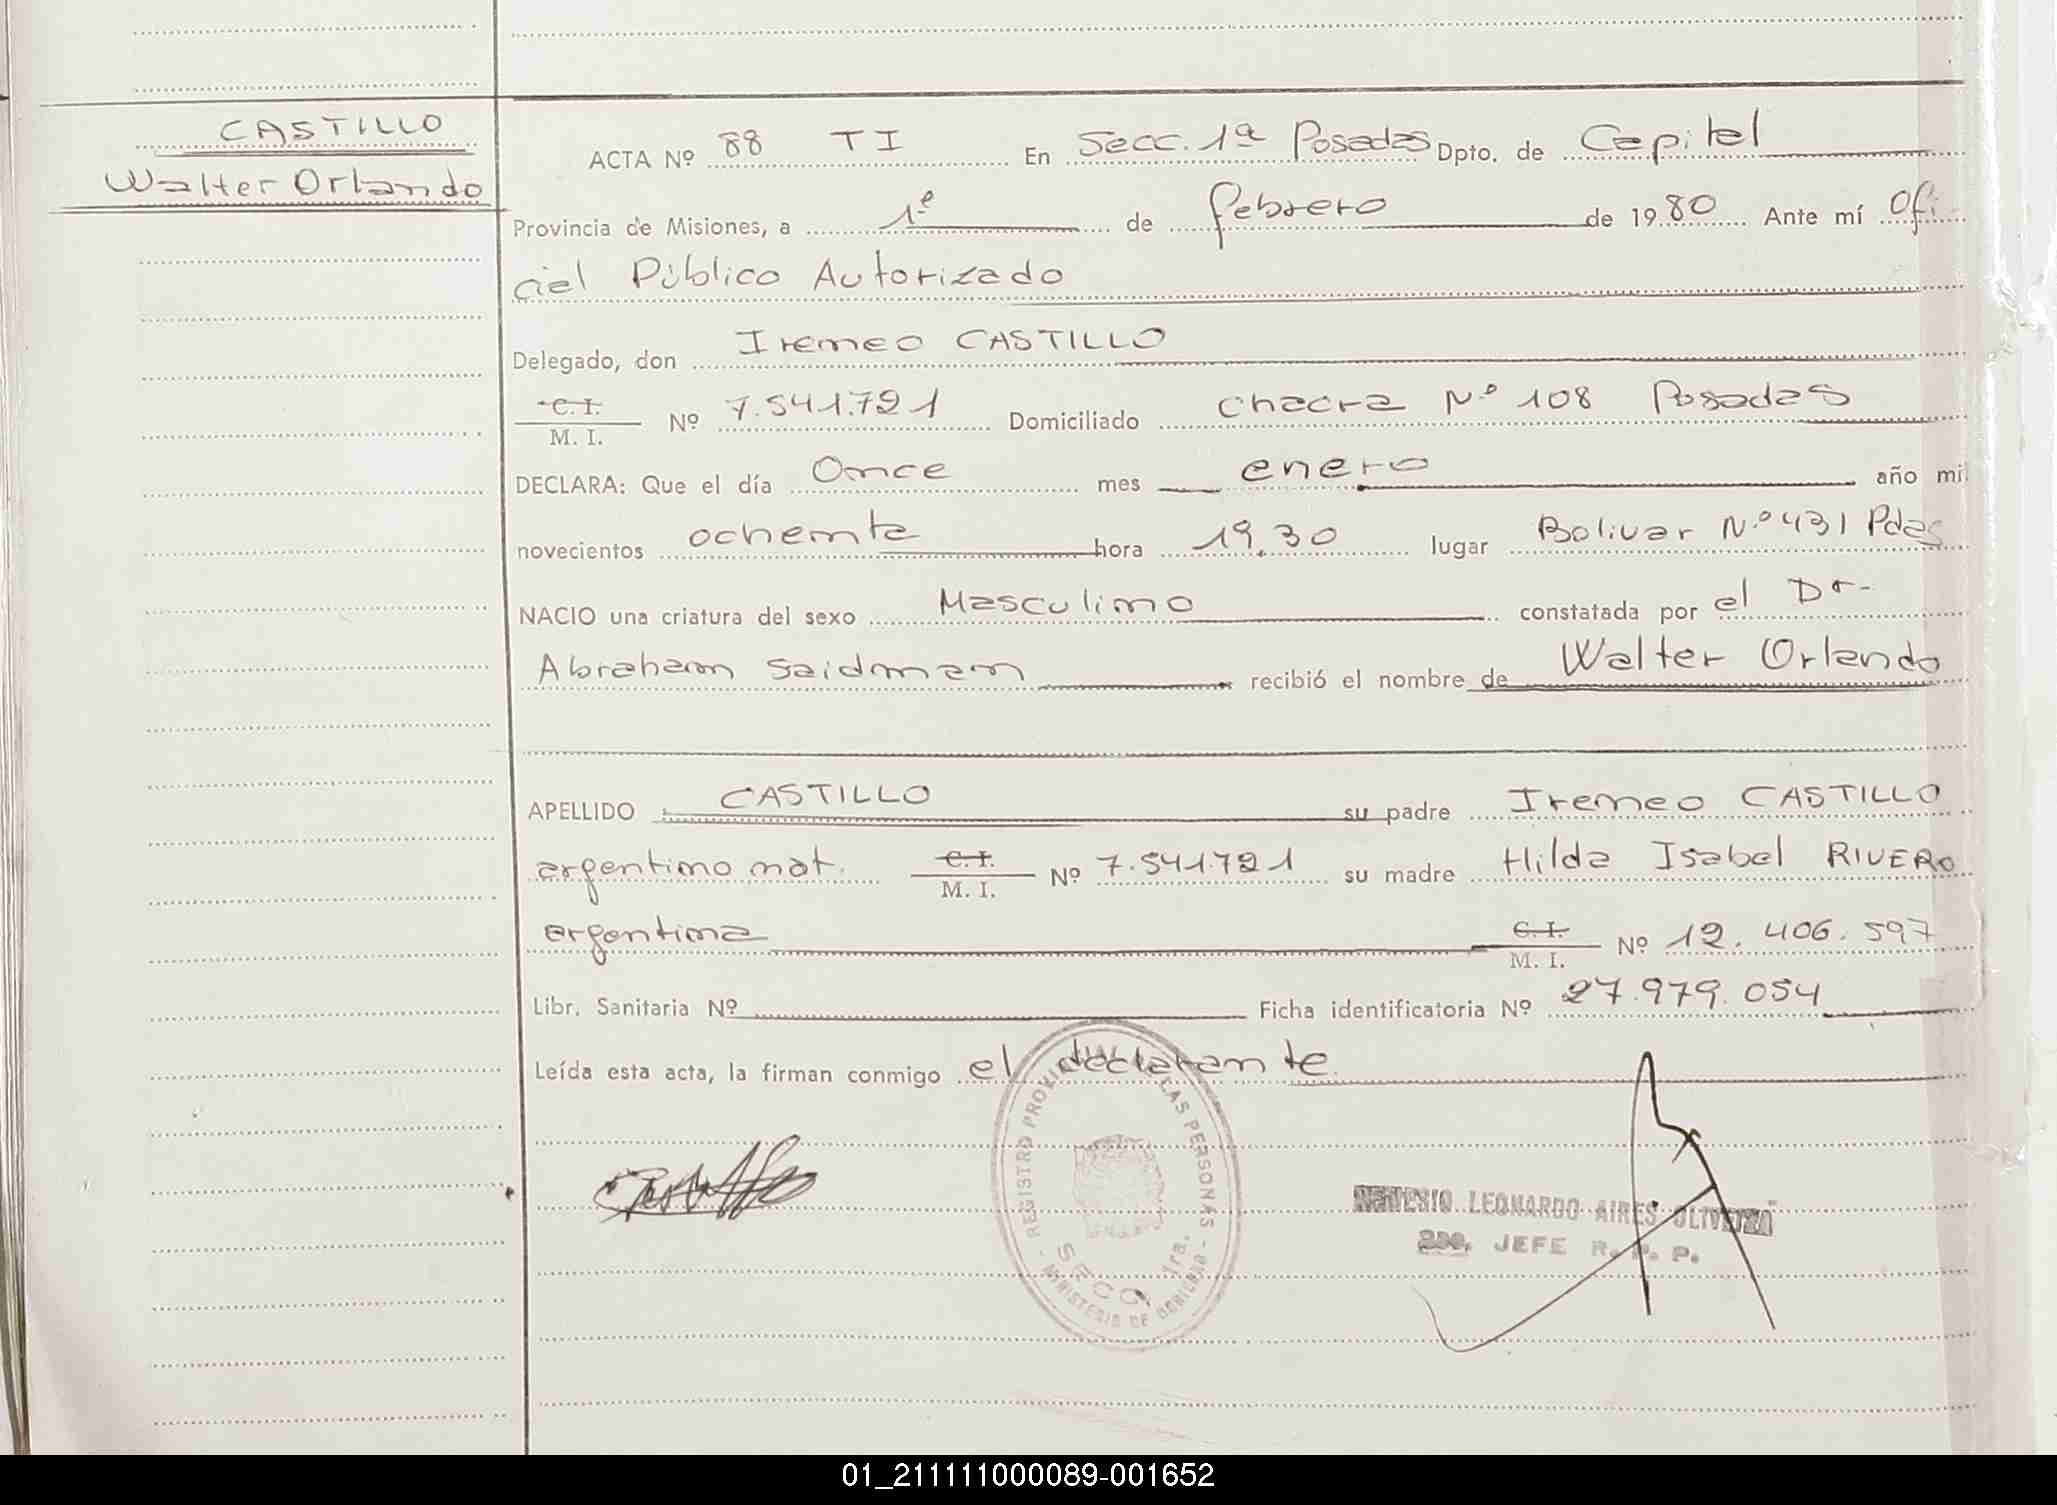 CASTILLO
Walter Orlando
ACTA Nº 88 TI En Secc. 1ª Posadas Dpto. de Capital
Provincia de Misiones, a 1º de febrero de 1980 Ante mí Ofi
cial Público Autorizado
Delegado, don Ireneo CASTILLO
C. I.
M. I. Nº 7.541.721 Domiciliado chacra Nº 108 Posadas
DECLARA: Que el día Once mes enero año mil
novecientos ochenta hora 19.30 lugar Bolivar Nº 431 Pdas
NACIO una criatura del sexo Masculino constatada por el Dr.
Abraham Saidman recibió el nombre de Walter Orlando
APELLIDO CASTILLO su padre Ireneo CASTILLO
argentino nat. C. I. M. I. Nº 7.541.721 su madre Hilda Isabel RIVERO
argentina C. I. M. I. Nº 12.406.597
Libr. Sanitaria Nº Ficha identificatoria Nº 27.979.054
Leída esta acta, la firman conmigo el declarante
REGISTRO PROVINCIAL DE LAS PERSONAS
SECC. 1ra.
MINISTERIO DE GOBIERNO
LEONARDO AIRES OLIVEIRA
JEFE R. P. P.
01_211111000089-001652